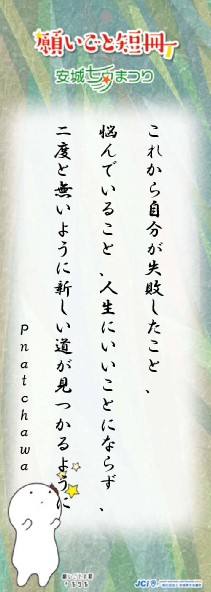 願いごと短冊
安城七夕まつり
これから自分が失敗したこと、
悩んでいること、人生にいいことにならず、
二度と無いように新しい道が見つかるように
Pnatchawa
JCI